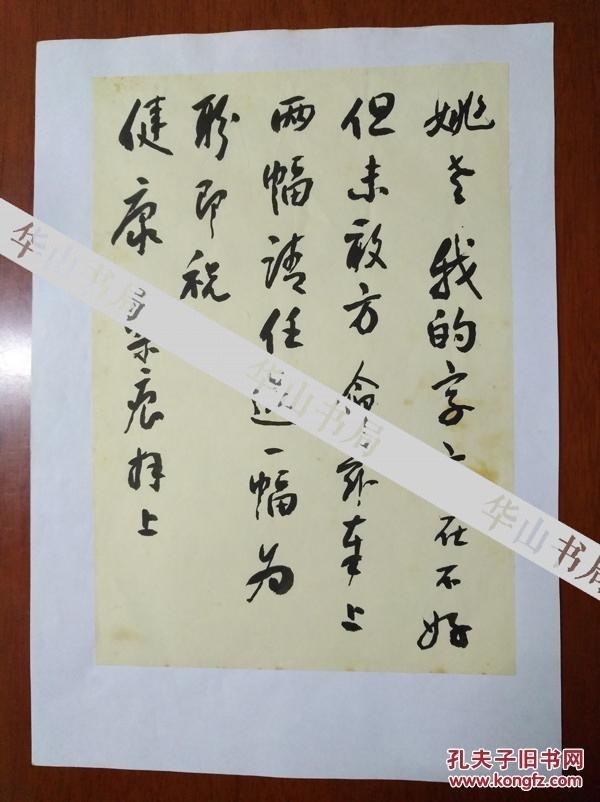 姚老我的字实在不好
但未敢方命兹奉上
两幅请任选一幅为
盼即祝
健康 痕拜上
华山书局
华山书局
华山书局
孔夫子旧书网
www.kongfz.com